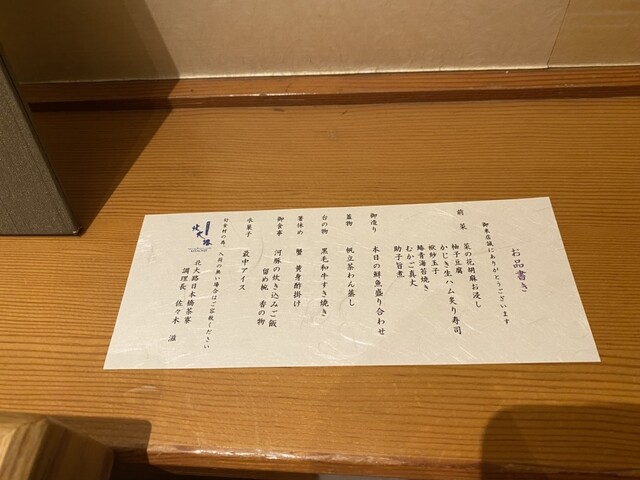 お品書き
御来店誠にありがとうございます
前菜 菜の花胡麻お浸し
柚子豆腐
かじき生ハム炙り寿司
献砂玉子
鰆青海苔焼き
むかご真丈
助子旨煮
御造り 本日の鮮魚盛り合わせ
蓋物 帆立茶わん蒸し
台の物 黒毛和牛すき焼き
箸休め 蟹 黄身酢掛け
御食事 河豚の炊き込みご飯
留め椀 香の物
水菓子 最中アイス
旬食材の為、入荷の無い場合はご容赦ください
北大路
北大路日本橋茶寮
調理長 佐々木 滋